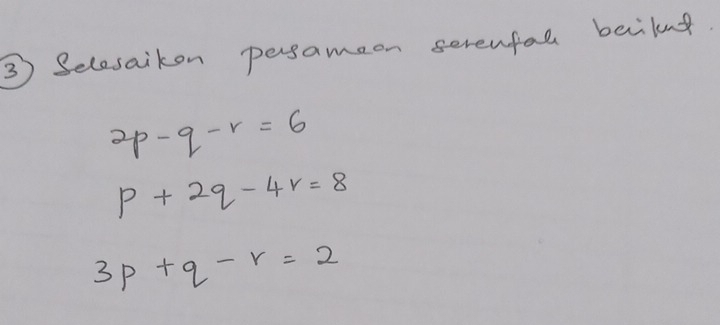 ③ Selesaikan persamaan serentak berikut.
2p - q - r = 6
p + 2q - 4r = 8
3p + q - r = 2